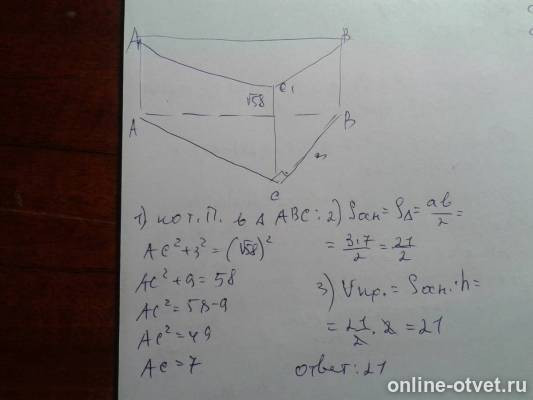 A₁ B₁
C₁
√58
A B
3
C
1) по т. П. в Δ ABC:
AC²+3²=(√58)²
AC²+9=58
AC²=58-9
AC²=49
AC=7
2) Sосн=SΔ=ab/2=
=3·7/2=21/2
3) Vпр.=Sосн·h=
=21/2·2=21
ответ: 21
online-otvet.ru